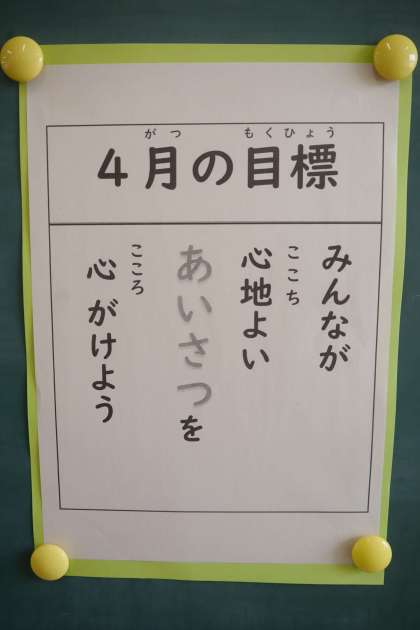 がつ もくひょう
4月の目標
みんなが
ここち
心地よい
あいさつを
こころ
心がけよう